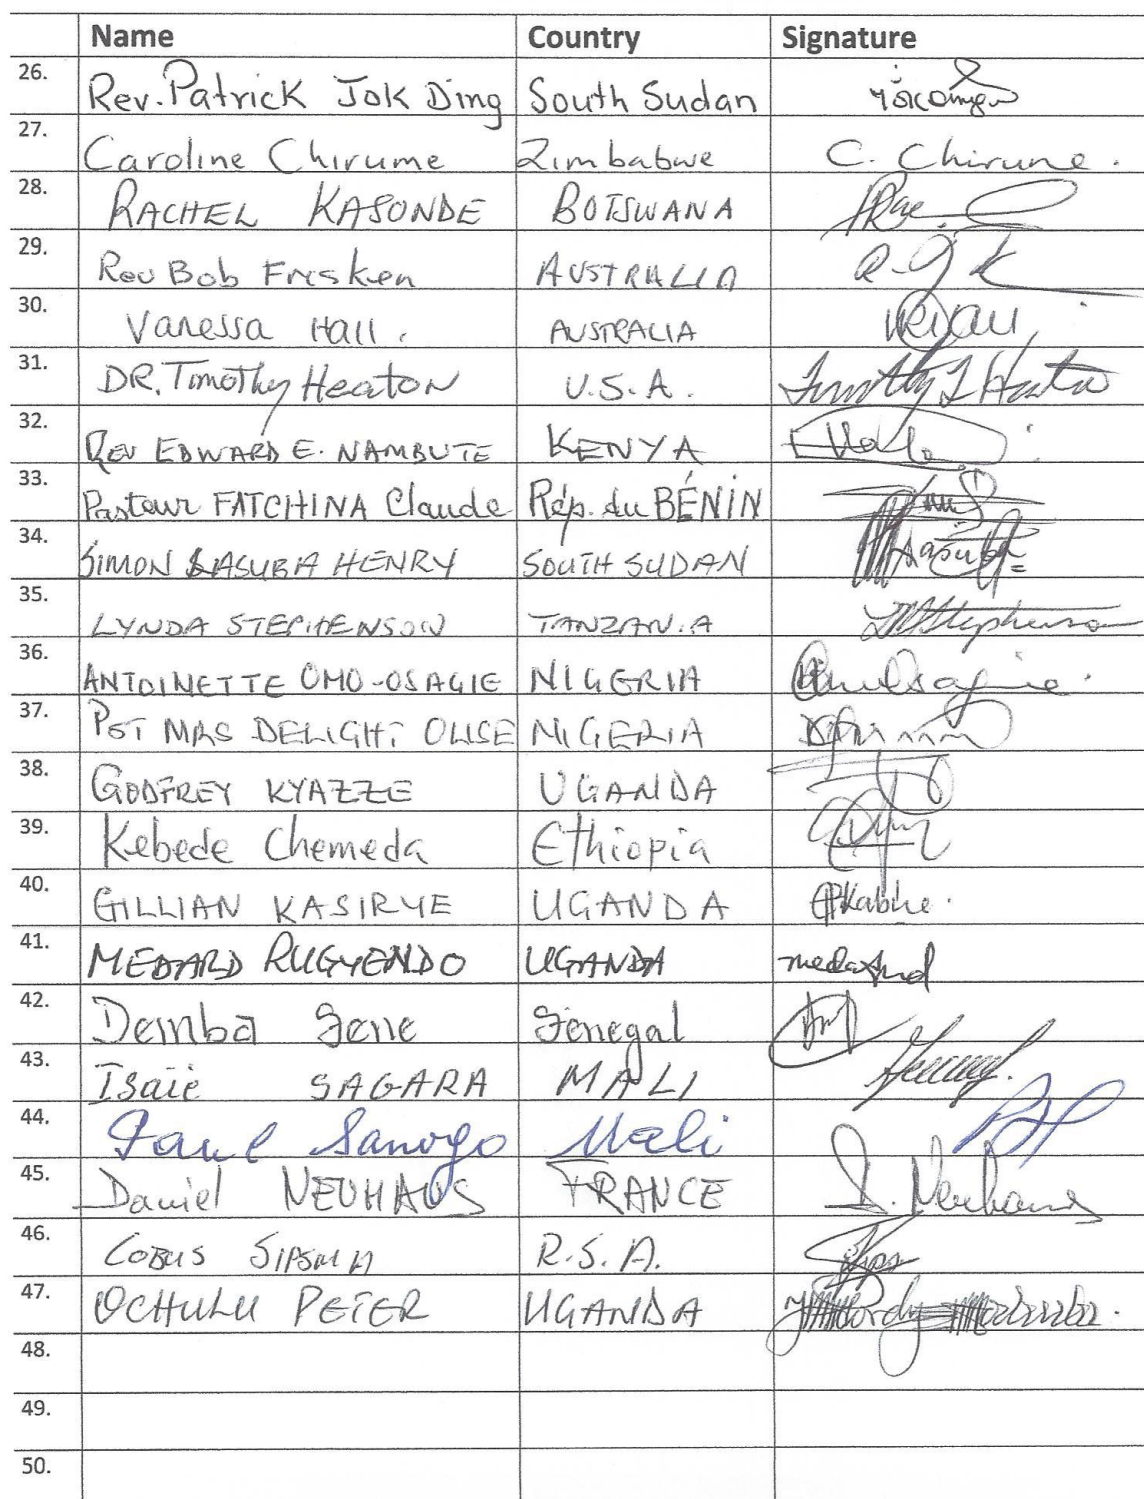 Name Country Signature
26. Rev. Patrick Jok Ding South Sudan
27. Caroline Chirume Zimbabwe C. Chirume.
28. RACHEL KASONDE BOTSWANA
29. Rev Bob Frisken AUSTRALIA
30. Vanessa Hall. AUSTRALIA
31. DR. Timothy Heaton U.S.A. Timothy L Heaton
32. REV EDWARD E. NAMBUTE KENYA
33. Pasteur FATCHINA Claude Rép. du BÉNIN
34. SIMON LASUBA HENRY SOUTH SUDAN Lasuba
35. LYNDA STEPHENSON TANZANIA Stephenson
36. ANTOINETTE OMO-OSAGIE NIGERIA
37. PST MRS DELIGHT OLISE NIGERIA
38. GODFREY KYAZZE UGANDA
39. Kebede Chemeda Ethiopia
40. GILLIAN KASIRYE UGANDA
41. MEDARD RUGYENDO UGANDA
42. Demba Sene Senegal
43. Isaïe SAGARA MALI
44. Paul Sanogo Mali
45. Daniel NEUHAUS FRANCE D. Neuhaus
46. COBUS SIPSMA R.S.A.
47. OCHULU PETER UGANDA
48.
49.
50.